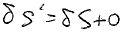 δS'=δS+0